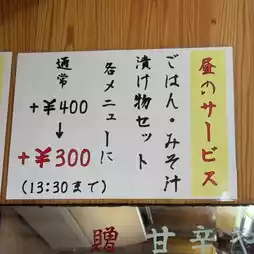 昼のサービス
ごはん・みそ汁
漬け物セット
各メニューに
通常
+¥400
↓
+¥300
(13:30まで)
贈 甘辛や